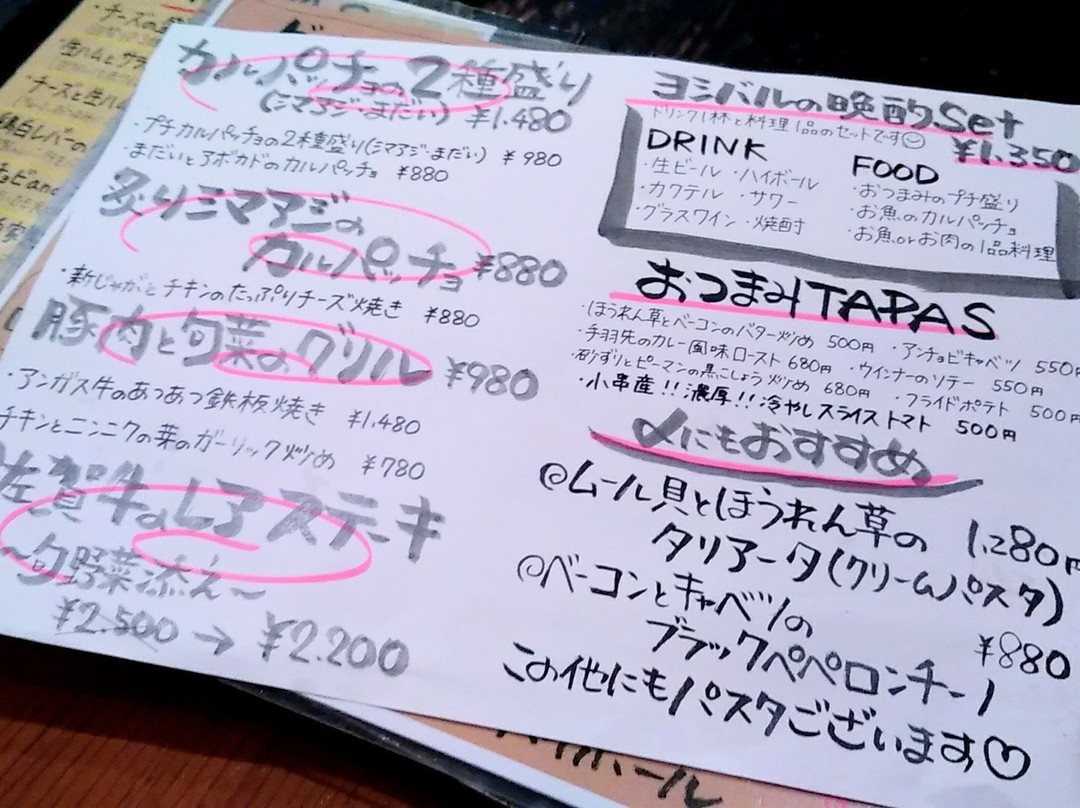 カルパッチョの2種盛り
(シマアジ・まだい) ¥1.480
・プチカルパッチョの2種盛り(シマアジ・まだい) ¥980
・まだいとアボカドのカルパッチョ ¥880
炙りシマアジの
カルパッチョ ¥880
・新じゃがとチキンのたっぷりチーズ焼き ¥880
豚肉と旬菜のグリル ¥980
・アンガス牛のあつあつ鉄板焼き ¥1,480
チキンとニンニクの芽のガーリック炒め ¥780
佐賀牛のレアステーキ
〜旬野菜添え〜
¥2.500→¥2.200
ヨシバルの晩酌Set
ドリンク1杯と料理1品のセットです
¥1.350
DRINK
・生ビール ・ハイボール
・カクテル ・サワー
・グラスワイン ・焼酎
FOOD
・おつまみのプチ盛り
・お魚のカルパッチョ
・お魚orお肉の1品料理
おつまみTAPAS
・ほうれん草とベーコンのバター炒め 500円 ・アンチョビキャベツ 550円
・手羽先のカレー風味ロースト 680円 ・ウインナーのソテー 550円
・砂ずりとピーマンの黒こしょう炒め 680円 ・フライドポテト 500円
・小串産!!濃厚!!冷やしスライストマト 500円
〆にもおすすめ
@ムール貝とほうれん草の 1,280円
タリアータ(クリームパスタ)
@ベーコンとキャベツの
ブラックペペロンチーノ ¥880
この他にもパスタございます♡
・チーズの
・生ハムとサラ
・チーズと生ハム
白レバーの